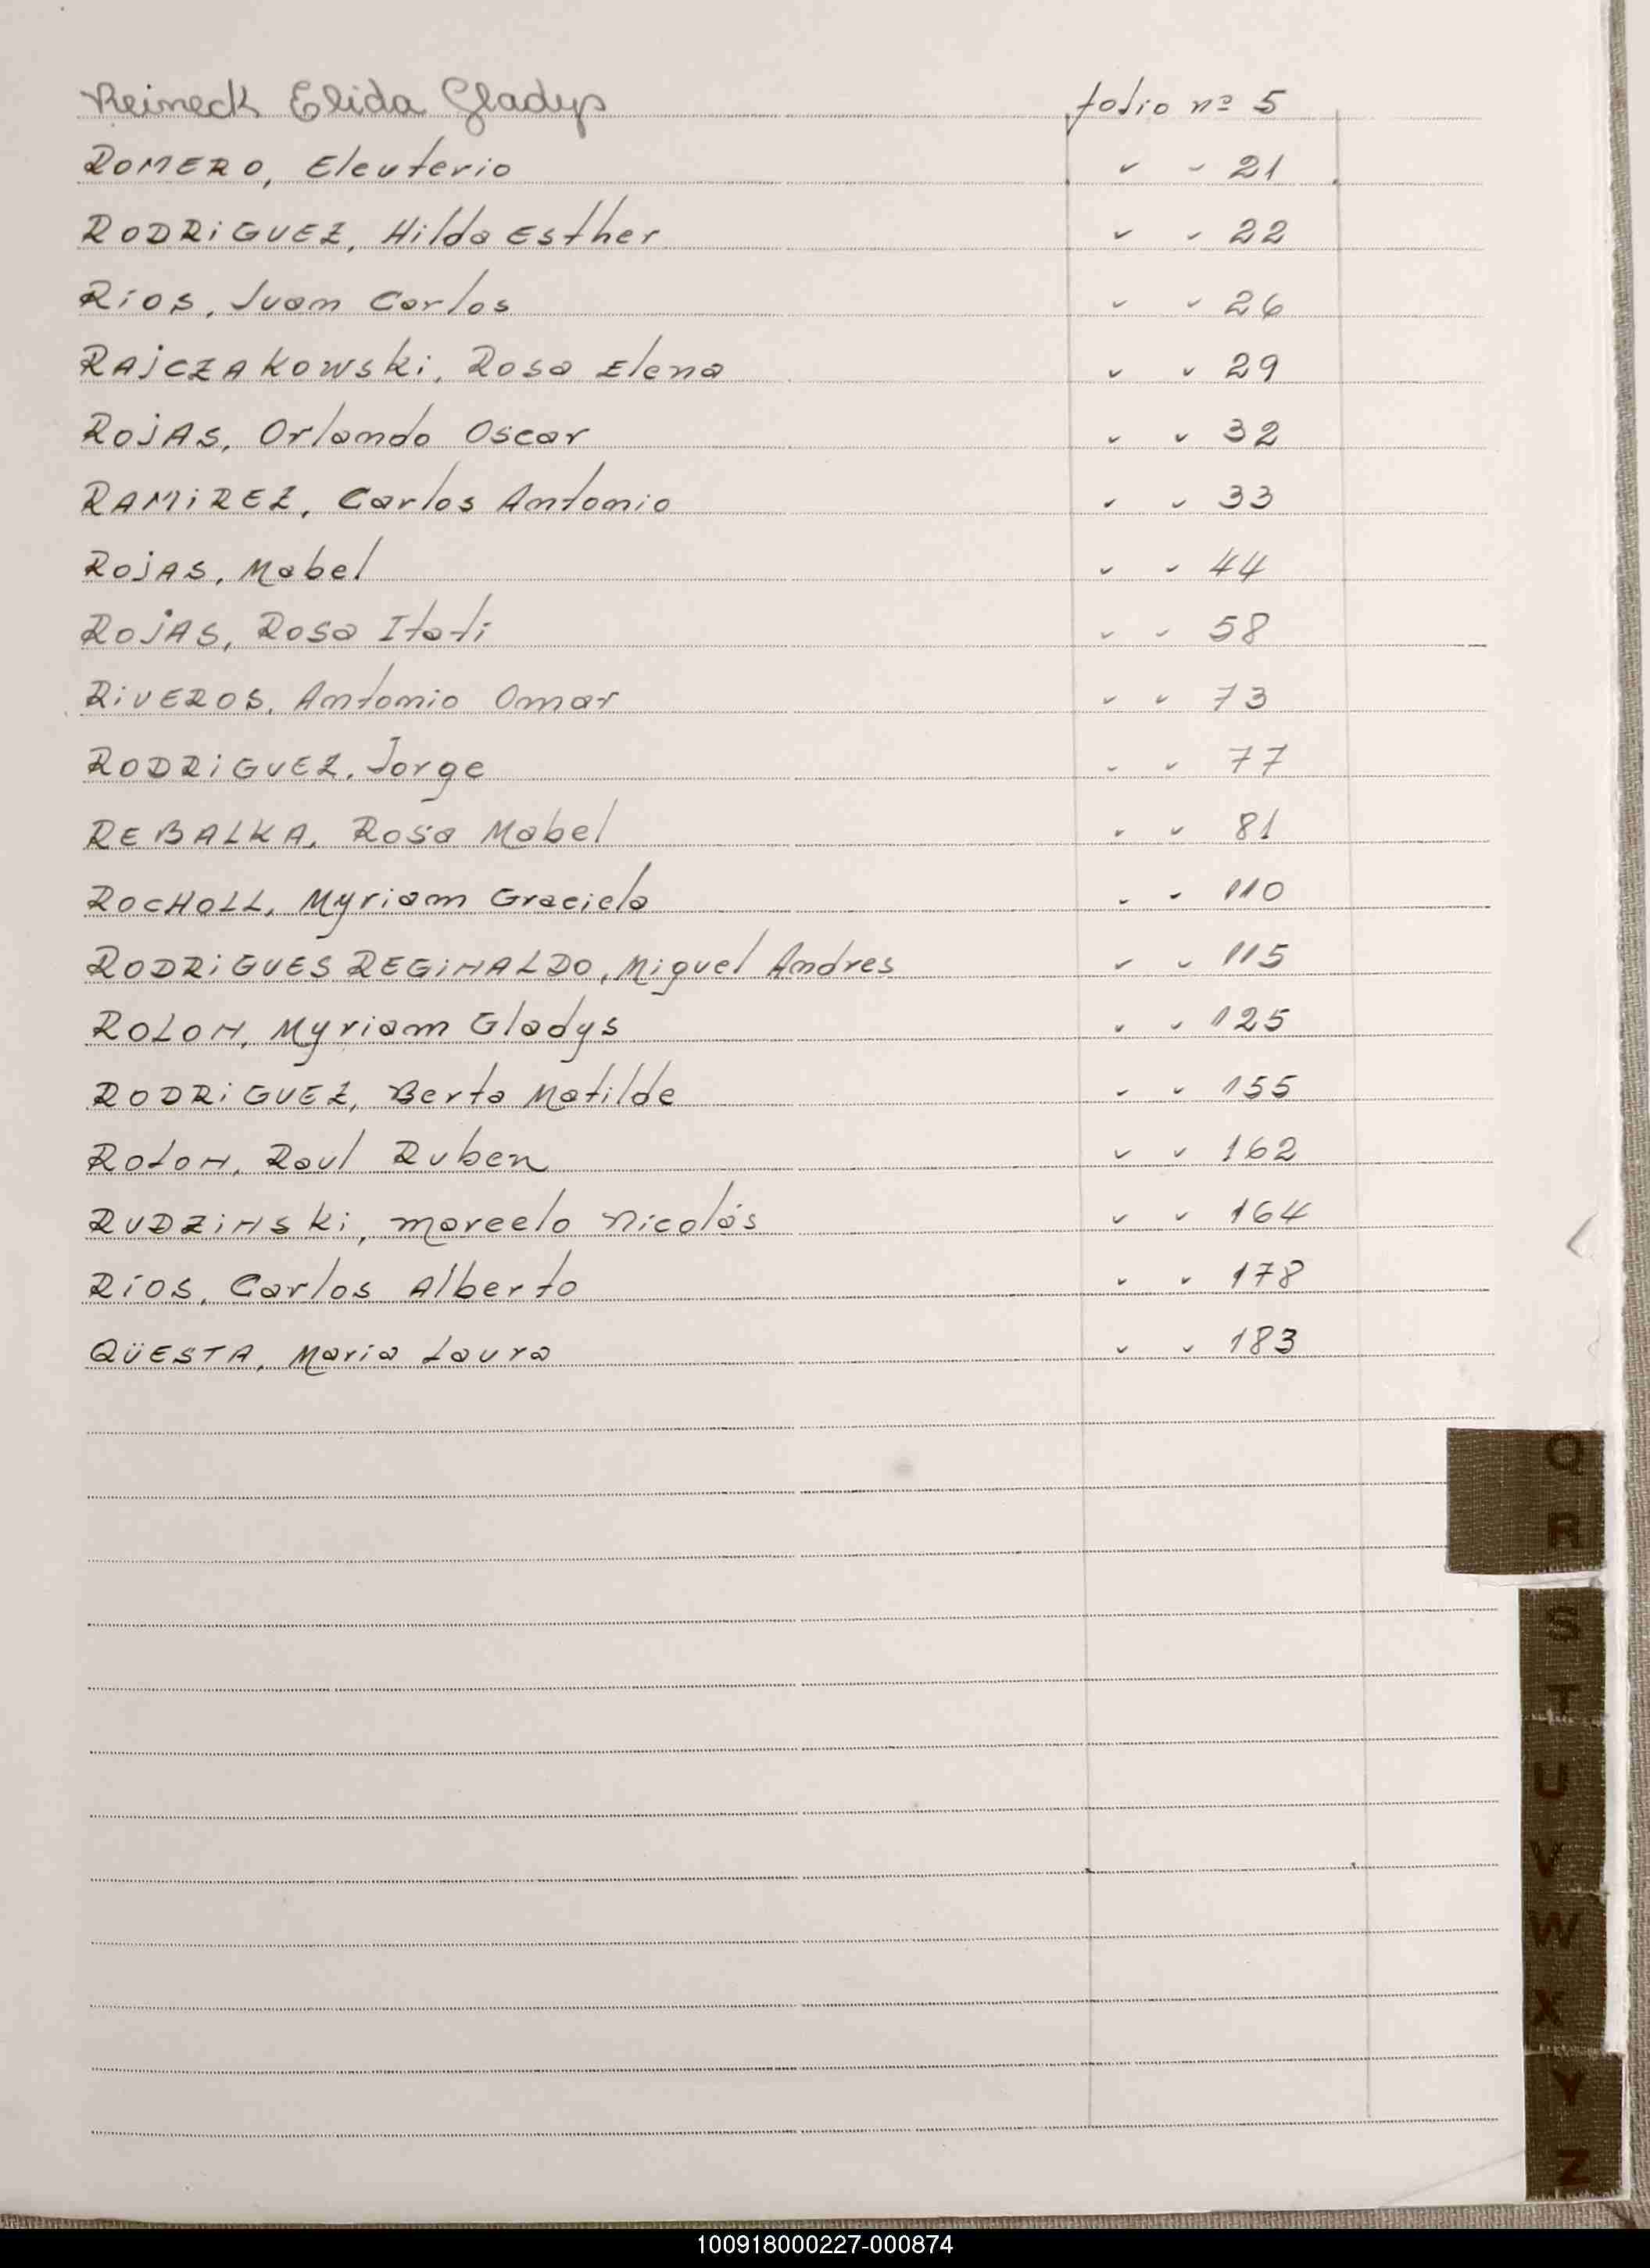 Reineck Elida Gladys folio nº 5
ROMERO, Eleuterio " " 21
RODRiGUEZ, Hilda Esther " " 22
Ríos, Juan Carlos " " 26
RAjCZAKOWSki, Rosa Elena " " 29
ROjAS, Orlando Oscar " " 32
RAMiREZ, Carlos Antonio " " 33
ROjAS, Mabel " " 44
ROjAS, Rosa Itati " " 58
RiVEROS, Antonio Omar " " 73
RODRiGUEZ, Jorge " " 77
REBALKA, Rosa Mabel " " 81
ROCHOLL, Myriam Graciela " " 110
RODRiGUES REGiNALDO, Miguel Andres " " 115
ROLON, Myriam Gladys " " 125
RODRiGUEZ, Berta Matilde " " 155
ROLON, Raul Ruben " " 162
RUDZiNSki, Marcelo Nicolás " " 164
Ríos, Carlos Alberto " " 178
QÜESTA, Maria Laura " " 183
Q
R
S
T
U
V
W
X
Y
Z
100918000227-000874